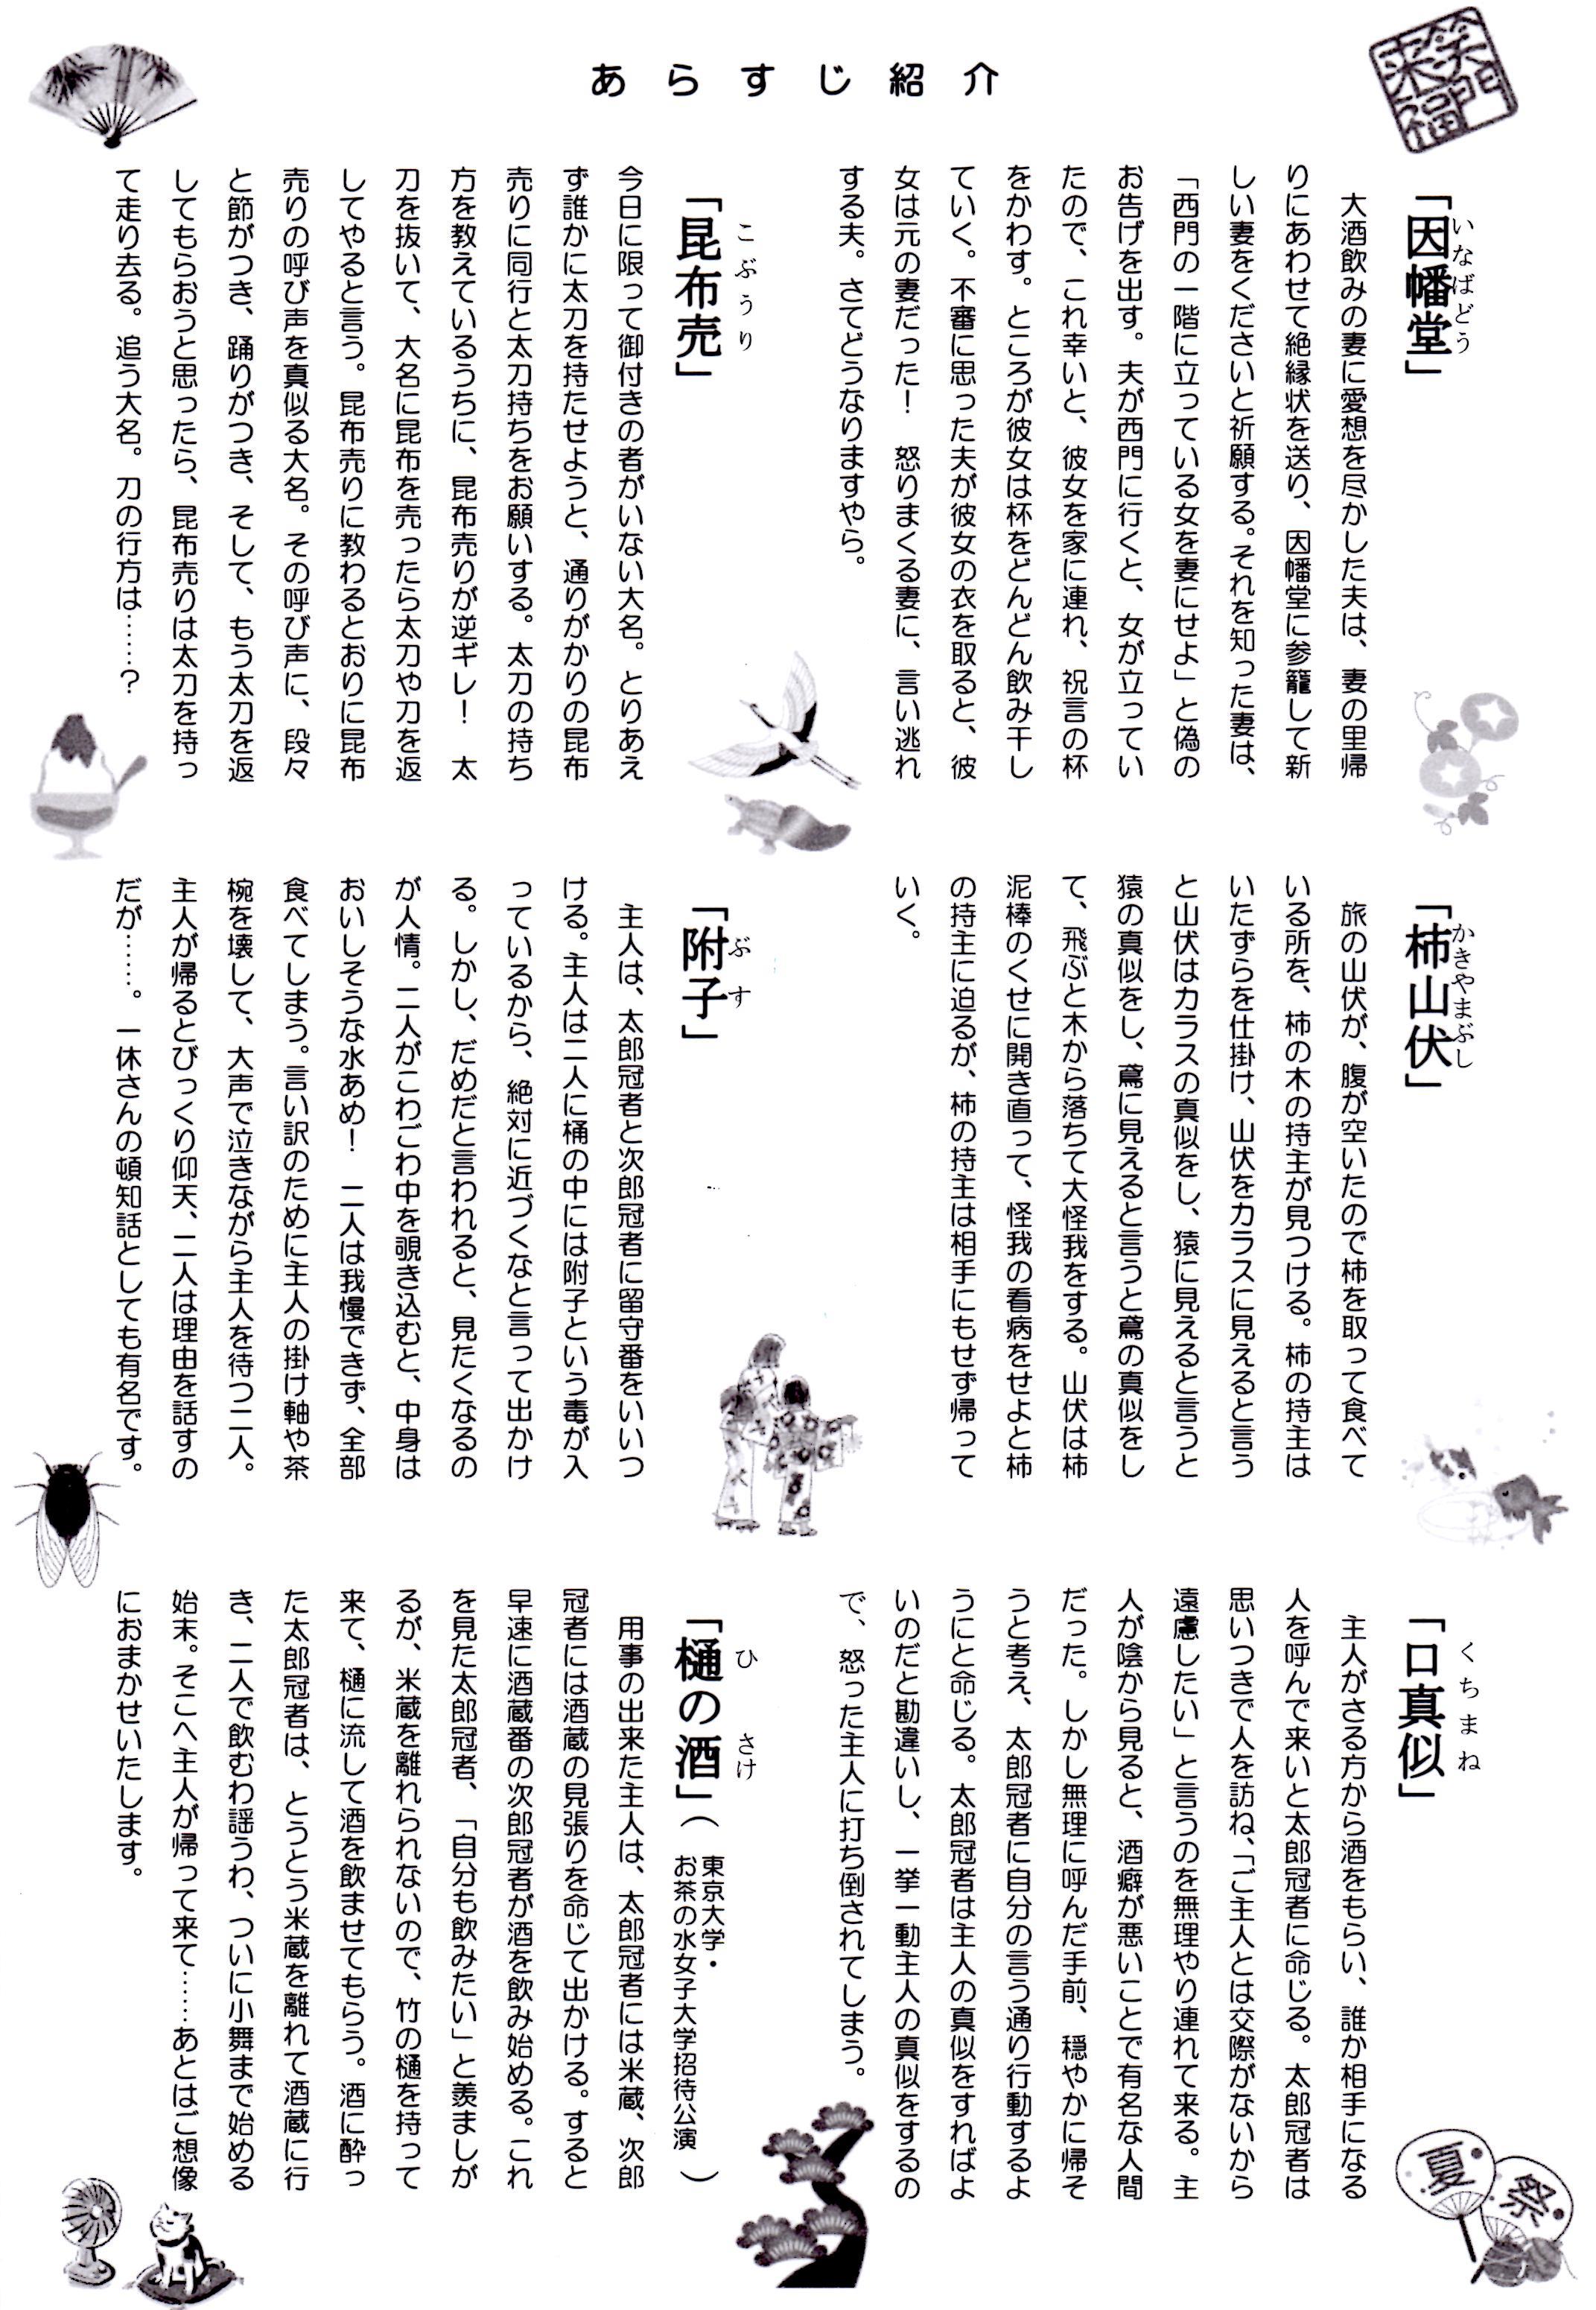 あらすじ紹介
笑門
来福
「因幡堂」
いなばどう
大酒飲みの妻に愛想を尽かした夫は、妻の里帰
りにあわせて絶縁状を送り、因幡堂に参籠して新
しい妻をくださいと祈願する。それを知った妻は、
「西門の一階に立っている女を妻にせよ」と偽の
お告げを出す。夫が西門に行くと、女が立ってい
たので、これ幸いと、彼女を家に連れ、祝言の杯
をかわす。ところが彼女は杯をどんどん飲み干し
ていく。不審に思った夫が彼女の衣を取ると、彼
女は元の妻だった！　怒りまくる妻に、言い逃れ
する夫。さてどうなりますやら。
「昆布売」
こぶうり
今日に限って御付きの者がいない大名。とりあえ
ず誰かに太刀を持たせようと、通りがかりの昆布
売りに同行と太刀持ちをお願いする。太刀の持ち
方を教えているうちに、昆布売りが逆ギレ！　太
刀を抜いて、大名に昆布を売ったら太刀や刀を返
してやると言う。昆布売りに教わるとおりに昆布
売りの呼び声を真似る大名。その呼び声に、段々
と節がつき、踊りがつき、そして、もう太刀を返
してもらおうと思ったら、昆布売りは太刀を持っ
て走り去る。追う大名。刀の行方は……？
「柿山伏」
かきやまぶし
旅の山伏が、腹が空いたので柿を取って食べて
いる所を、柿の木の持主が見つける。柿の持主は
いたずらを仕掛け、山伏をカラスに見えると言う
と山伏はカラスの真似をし、猿に見えると言うと
猿の真似をし、鳶に見えると言うと鳶の真似をし
て、飛ぶと木から落ちて大怪我をする。山伏は柿
泥棒のくせに開き直って、怪我の看病をせよと柿
の持主に迫るが、柿の持主は相手にもせず帰って
いく。
「附子」
ぶす
主人は、太郎冠者と次郎冠者に留守番をいいつ
ける。主人は二人に桶の中には附子という毒が入
っているから、絶対に近づくなと言って出かけ
る。しかし、だめだと言われると、見たくなるの
が人情。二人がこわごわ中を覗き込むと、中身は
おいしそうな水あめ！　二人は我慢できず、全部
食べてしまう。言い訳のために主人の掛け軸や茶
椀を壊して、大声で泣きながら主人を待つ二人。
主人が帰るとびっくり仰天、二人は理由を話すの
だが……。一休さんの頓知話としても有名です。
「口真似」
くちまね
主人がさる方から酒をもらい、誰か相手になる
人を呼んで来いと太郎冠者に命じる。太郎冠者は
思いつきで人を訪ね、「ご主人とは交際がないから
遠慮したい」と言うのを無理やり連れて来る。主
人が陰から見ると、酒癖が悪いことで有名な人間
だった。しかし無理に呼んだ手前、穏やかに帰そ
うと考え、太郎冠者に自分の言う通り行動するよ
うにと命じる。太郎冠者は主人の真似をすればよ
いのだと勘違いし、一挙一動主人の真似をするの
で、怒った主人に打ち倒されてしまう。
「樋の酒」（東京大学・
お茶の水女子大学招待公演）
ひ　さけ
用事の出来た主人は、太郎冠者には米蔵、次郎
冠者には酒蔵の見張りを命じて出かける。すると
早速に酒蔵番の次郎冠者が酒を飲み始める。これ
を見た太郎冠者、「自分も飲みたい」と羨ましが
るが、米蔵を離れられないので、竹の樋を持って
来て、樋に流して酒を飲ませてもらう。酒に酔っ
た太郎冠者は、とうとう米蔵を離れて酒蔵に行
き、二人で飲むわ謡うわ、ついに小舞まで始める
始末。そこへ主人が帰って来て……あとはご想像
におまかせいたします。
夏
祭